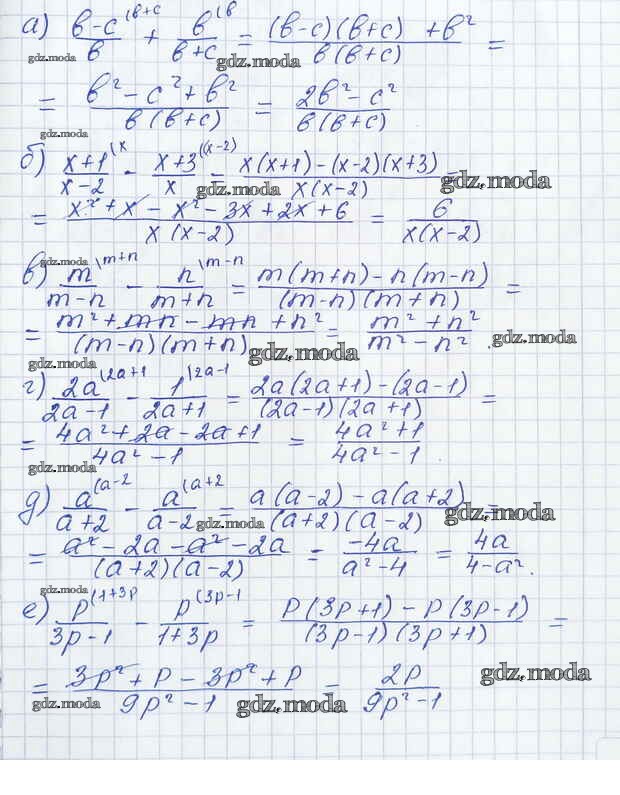 а) (в-с)/в \в+с + в/(в+с) \в = ((в-с)(в+с) + в²)/(в(в+с)) =
gdz.moda gdz.moda
= (в² - с² + в²)/(в(в+с)) = (2в² - с²)/(в(в+с))
gdz.moda
б) (x+1)/(x-2) \x - (x+3)/x \(x-2) = (x(x+1) - (x-2)(x+3))/(x(x-2)) =
gdz.moda gdz.moda
= (x² + x - x² - 3x + 2x + 6)/(x(x-2)) = 6/(x(x-2))
gdz.moda
в) m/(m-n) \m+n - n/(m+n) \m-n = (m(m+n) - n(m-n))/((m-n)(m+n)) =
= (m² + mn - mn + n²)/((m-n)(m+n)) = (m² + n²)/(m² - n²).
gdz.moda gdz.moda gdz.moda
г) 2a/(2a-1) \2a+1 - 1/(2a+1) \2a-1 = (2a(2a+1) - (2a-1))/((2a-1)(2a+1)) =
= (4a² + 2a - 2a + 1)/(4a² - 1) = (4a² + 1)/(4a² - 1).
gdz.moda
д) a/(a+2) \a-2 - a/(a-2) \a+2 = (a(a-2) - a(a+2))/((a+2)(a-2)) =
gdz.moda gdz.moda
= (a² - 2a - a² - 2a)/((a+2)(a-2)) = -4a/(a²-4) = 4a/(4-a²).
gdz.moda
е) p/(3p-1) \1+3p - p/(1+3p) \3p-1 = (p(3p+1) - p(3p-1))/((3p-1)(3p+1)) =
= (3p² + p - 3p² + p)/(9p² - 1) = 2p/(9p² - 1)
gdz.moda gdz.moda gdz.moda